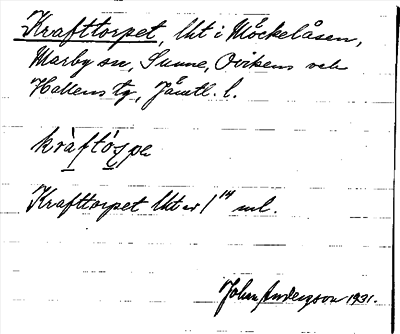 Krafttorpet, lht i Möckelåsen,
Marby sn, Sunne, Ovikens och
Hallens tg, Jämtl. l.
kràftórpe
Krafttorpet lht av 1¹⁴ mtl.
Johan Andersson 1931.